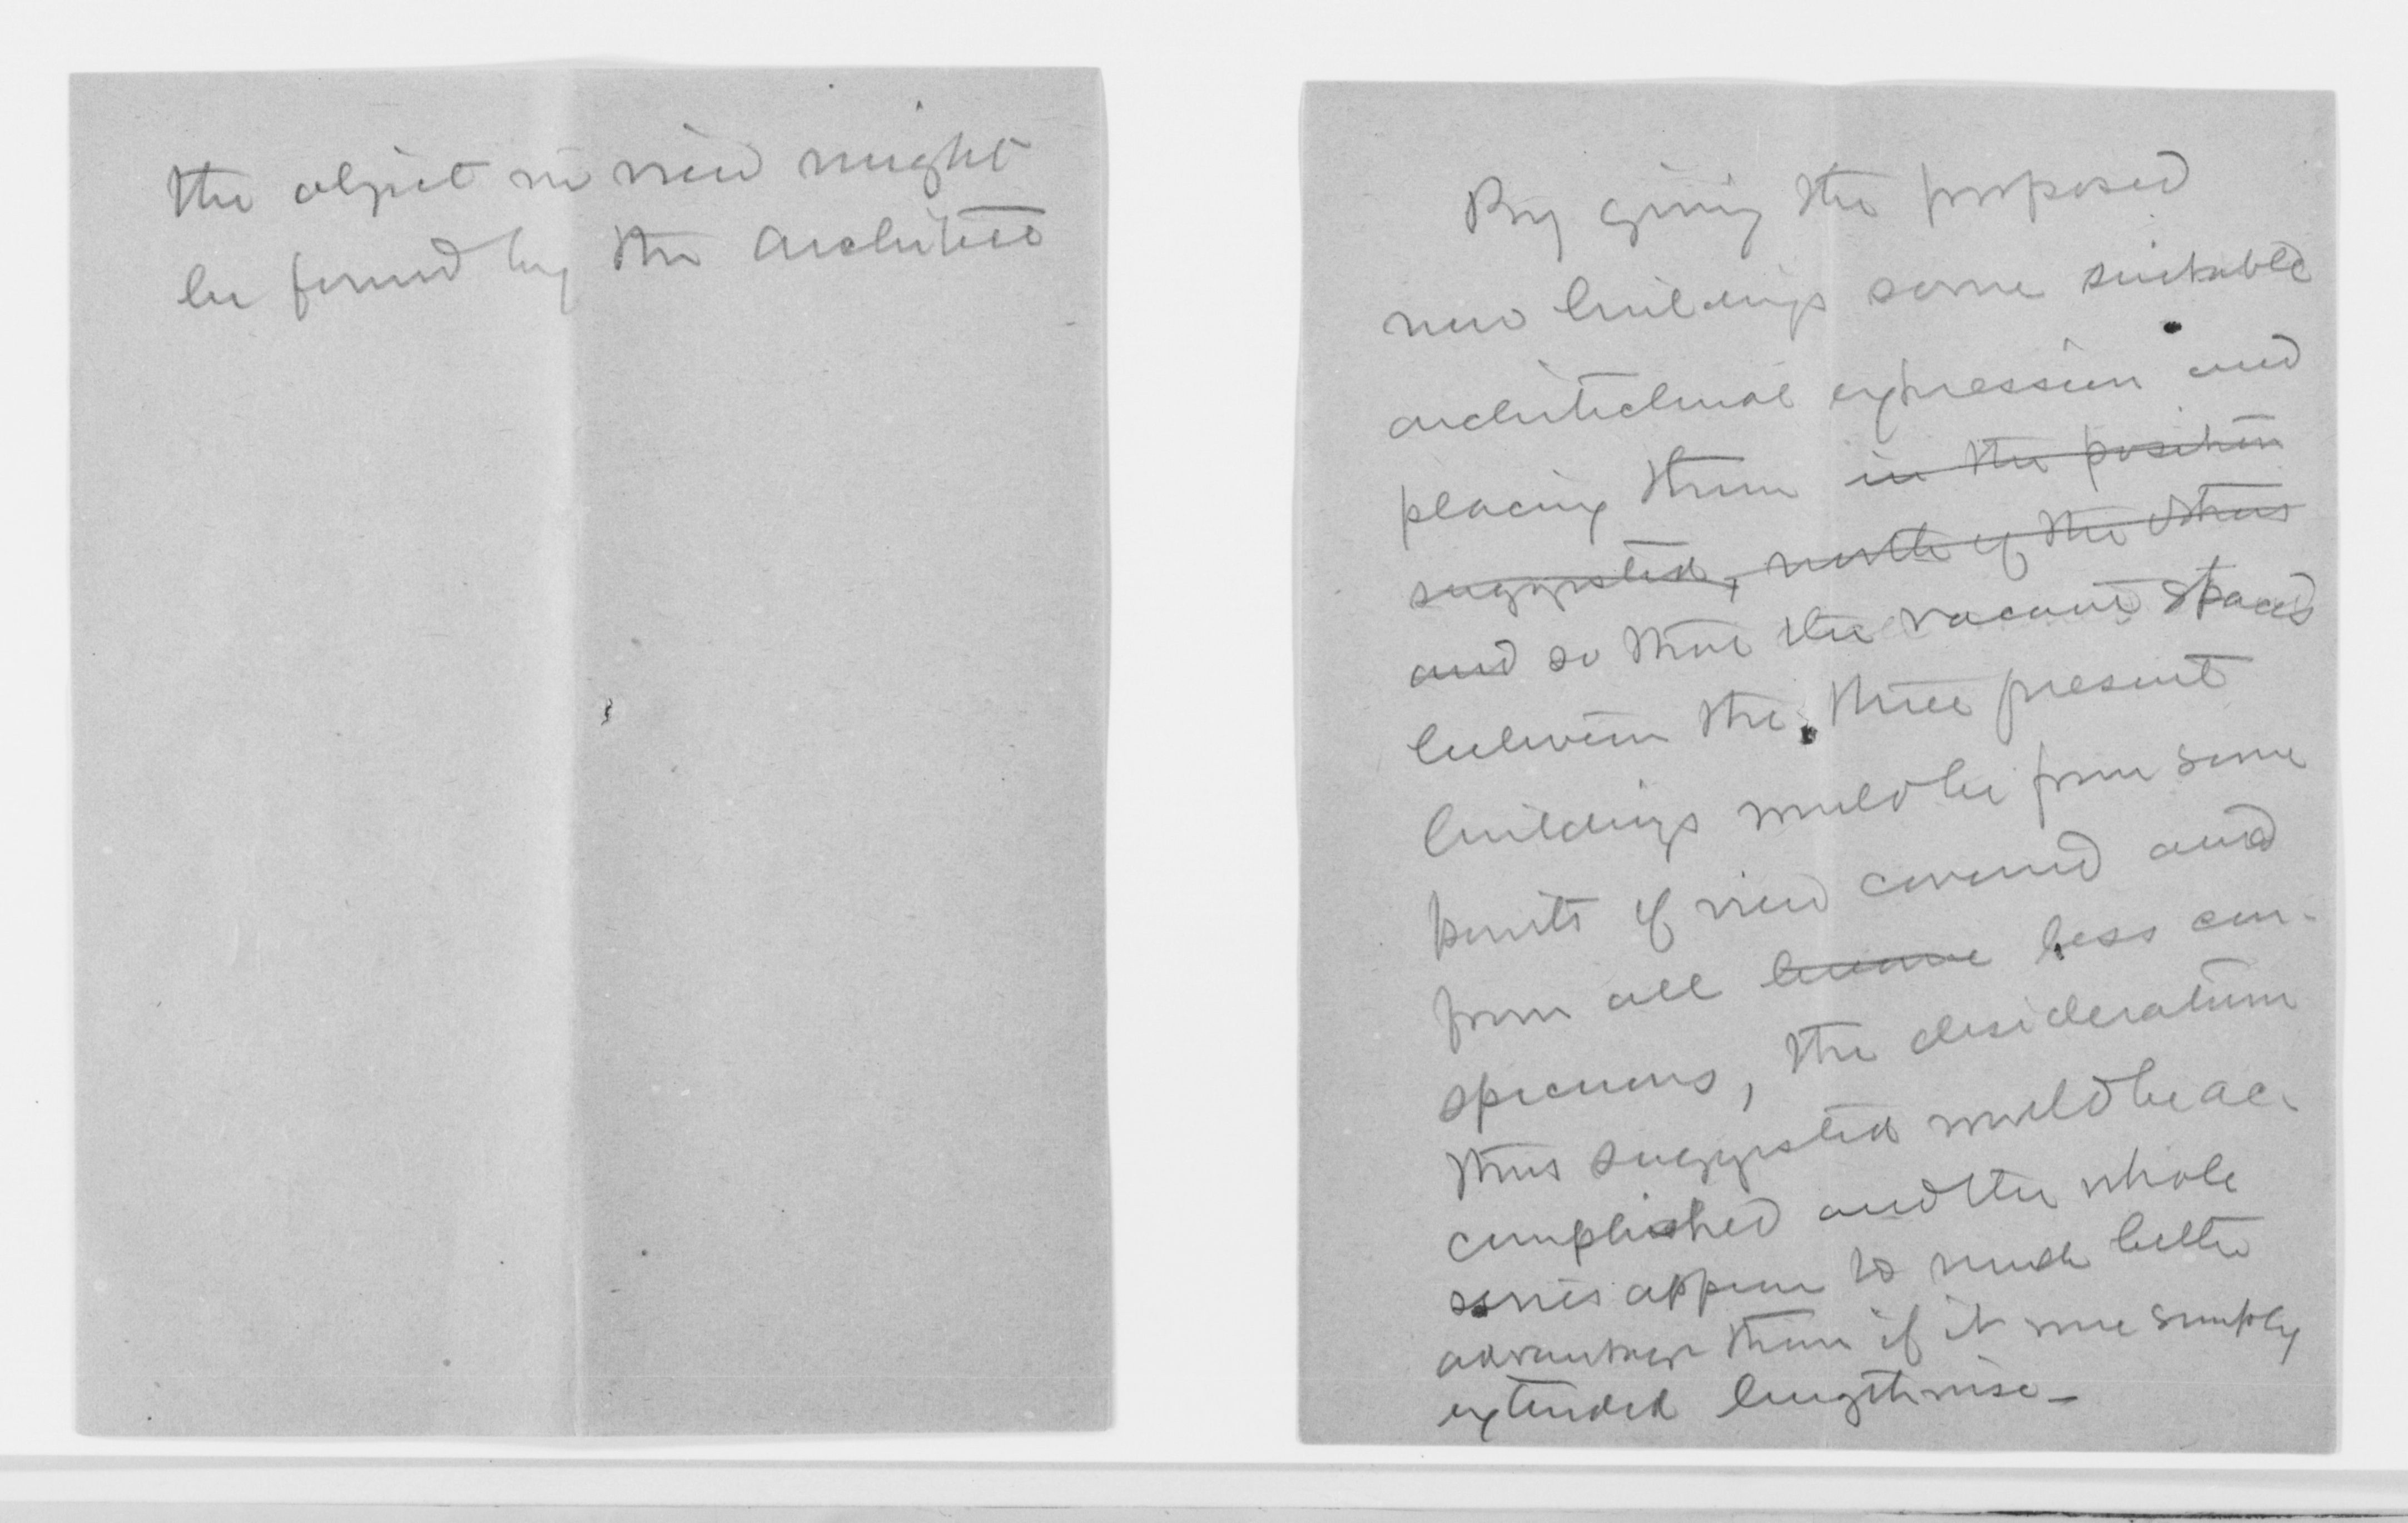 the object in view might
be found by the architect
By giving the proposed
new buildings some suitable
architectural expression and
placing them in the position
suggested, north of the others
and so that the vacant spaces
between the three present
buildings would be from some
points of view covered and
from all become less con-
spicuous, the desideratum
thus suggested would be ac-
complished and the whole
series appear to much better
advantage than if it were simply
extended lengthwise-